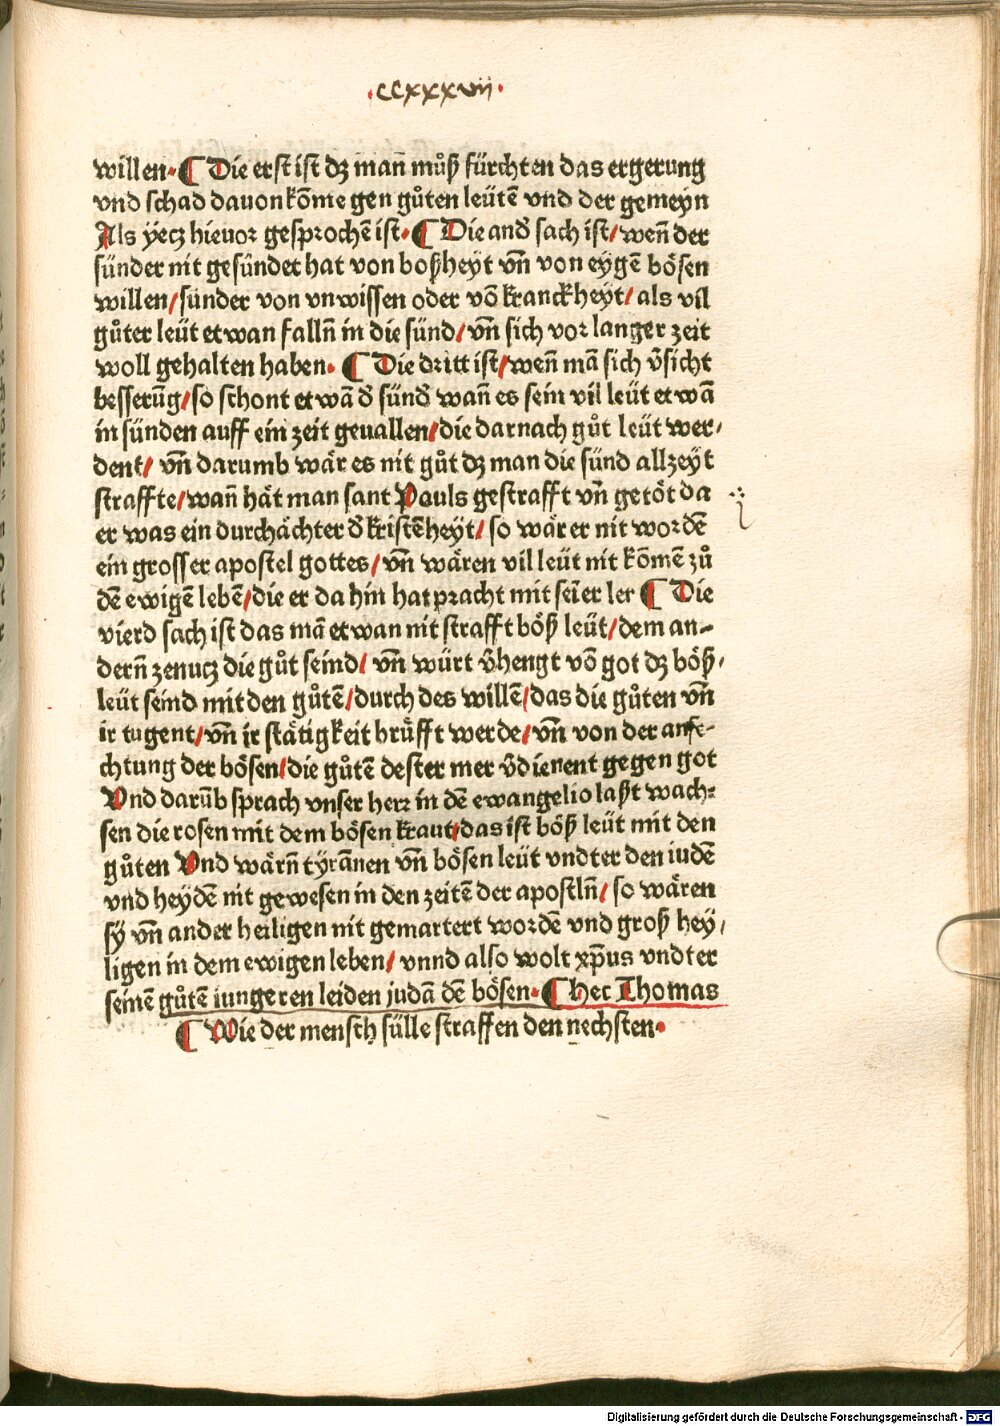 ·ccxxxvii·
willen· ¶ Die erst ist dz man̄ můß fürchten das ergerung
vnd schad dauon kōme gen gůten leütē vnd der gemeyn
Als yecz hieuor gesprochē ist· ¶ Die and̄ sach ist/ wen̄ der
sünder nit gesündet hat von boßheyt vn̄ von eygē bösen
willen/ sünder von vnwissen oder vō kranckheyt/ als vil
gůter leüt etwan falln̄ in die sünd/ vn̄ sich vor langer zeit
woll gehalten haben· ¶ Die dritt ist/ wen̄ mā sich v̄sicht
besserūg/ so schont etwā d̄ sünd̄ wan̄ es sein vil leüt etwā
in sünden auff ein zeit geuallen/ die darnach gůt leüt wer⸗
dent/ vn̄ darumb wär es nit gůt dz man die sünd allzeyt
straffte/ wan̄ hät man sant Pauls gestrafft vn̄ getöt da
er was ein durchächter d̄ kristēheyt/ so wär er nit wordē
ein grosser apostel gottes/ vn̄ wären vil leüt nit kōmē zů
dē ewigē lebē/ die er da hin hat pracht mit sei̅er ler ¶ Die
vierd sach ist das mā etwan nit strafft böß leüt/ dem an⸗
dern̄ zenucz die gůt seind/ vn̄ würt v̄hengt vō got dz böß⸗
leüt seind mit den gůtē/ durch des willē/ das die gůten vn̄
ir tugent/ vn̄ ir stätigkeit brüfft werde/ vn̄ von der anfe⸗
chtung der bösen/ die gůtē dester mer v̄dienent gegen got
Vnd darūb sprach vnser herr in dē ewangelio laßt wach⸗
sen die rosen mit dem bösen kraut/ das ist böß leüt mit den
gůten Vnd wärn̄ tyrānen vn̄ bösen leüt vndter den iudē
vnd heydē nit gewesen in den zeitē der apostln̄/ so wären
sy vn̄ ander heiligen nit gemartert wordē vnd groß hey⸗
ligen in dem ewigen leben/ vnnd also wolt xp̄us vndter
seinē gůtē iungeren leiden judā dē bösen· ¶ Hec Thomas
¶ Wie der mensch sülle straffen den nechsten·
Digitalisierung gefördert durch die Deutsche Forschungsgemeinschaft - DFG